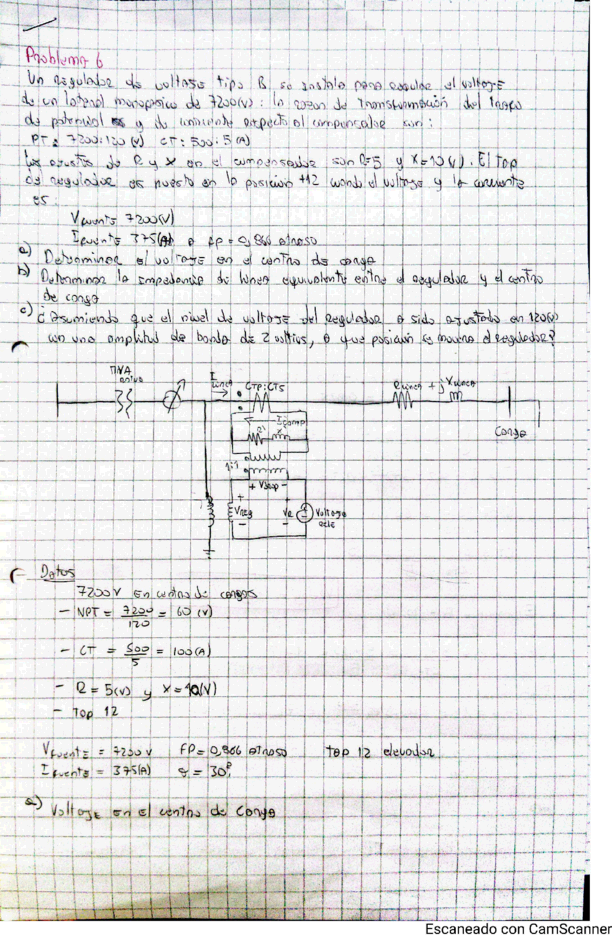 Problema 6
Un regulador de voltaje tipo B, se instala para regular el voltaje
de un lateral monofásico de 7200(v): la razon de transformación del
de potencial y de corriente respecto al compensador son:
PT = 7200:120 (v) CT: 500:5(A)
Los ajustes de R y X en el compensador son R=5 y X=10(v). El Tap
del regulador es puesto en la posición +12 cuando el voltaje y la corriente
es:
Vfuente 7200(v)
Ifuente 375(A) a fp = 0,866 atraso
a) Determinar el voltaje en el centro de carga
b) Determinar la impedancia de linea equivalente entre el regulador y el centro
de carga
c) ¿Asumiendo que el nivel de voltaje del Regulador a sido ajustado en 120(v)
con una amplitud de banda de 2 voltios, a que posición se movera el regulador?
I linea
CTP:CTS
R linea + j X linea
Carga
I comp
1:1
+ Vdrop -
+
VReg
-
+
VR
-
Voltage
rele
Datos
7200 V en centro de cargas
- NPT = 7200/120 = 60 (v)
- CT = 500/5 = 100(A)
- R = 5(v) y X = 10(v)
- Tap 12
Vfuente = 7200 v FP = 0,866 atraso Tap 12 elevador
Ifuente = 375(A) = 30°
a) Voltaje en el centro de Carga
Escaneado con CamScanner